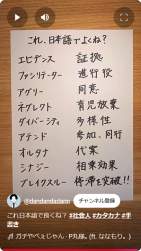 これ、日本語でよくね?
エビデンス 証拠
ファシリテーター 進行役
アグリー 同意
ネグレクト 育児放棄
ダイバーシティ 多様性
アテンド 参加、同行
オルタナ 代案
シナジー 相乗効果
ブレイクスルー 停滞を突破!!
@dandandadann
チャンネル登録
これ日本語で良くね? #社会人 #カタカナ #手書き
ガチやべぇじゃん - P丸様。(ft. ななもり。)